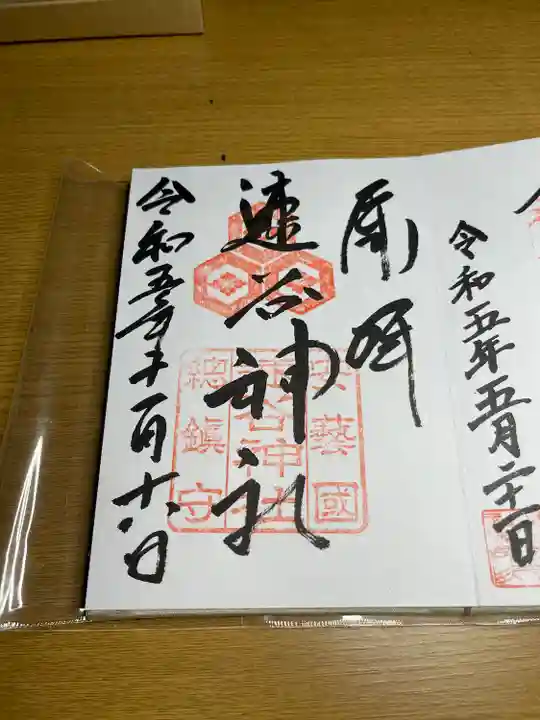 令和五年五月二十一日
奉拝
速谷神社
安藝國
速谷神社
総鎮守
令和五年十一月十八日